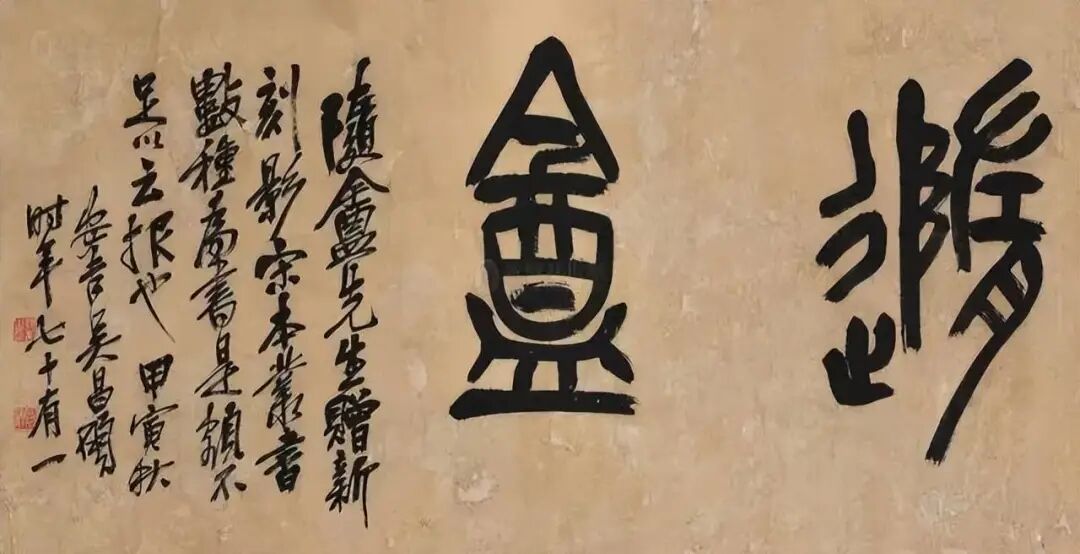 隨盦
隨盦先生贈新
刻影宋本叢書
數種屬書是額不
足以云报也 甲寅秋
安吉吴昌碩
时年七十有一